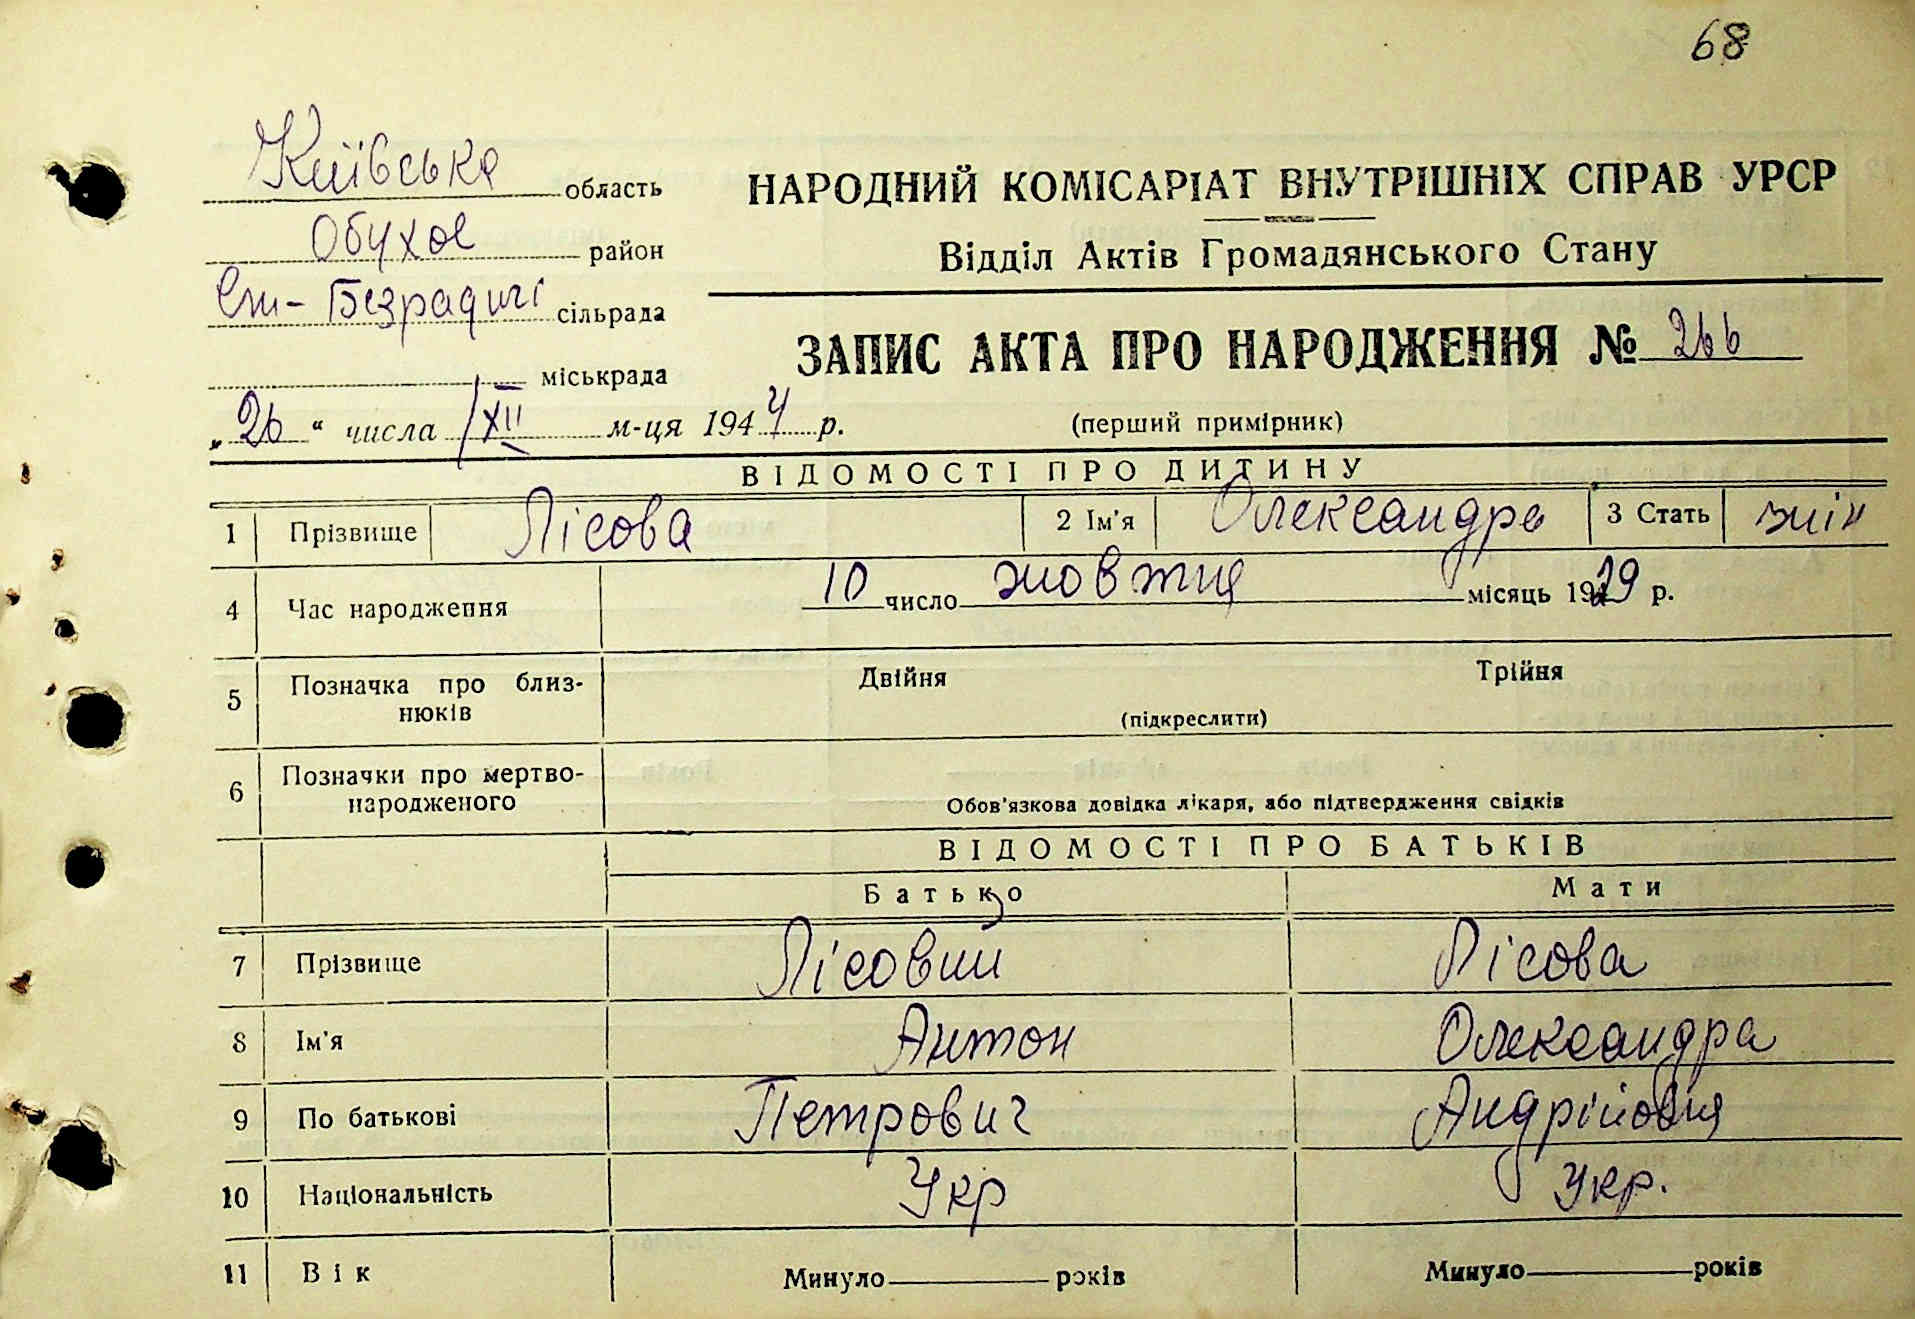 68
Київська область
Обухов район
Ст-Безрадичі сільрада
міськрада
НАРОДНИЙ КОМІСАРІАТ ВНУТРІШНІХ СПРАВ УРСР
Відділ Актів Громадянського Стану
ЗАПИС АКТА ПРО НАРОДЖЕННЯ № 266
(перший примірник)
„26“ числа XII м-ця 1944 р.
ВІДОМОСТІ ПРО ДИТИНУ
1 Прізвище Лісова 2 Ім'я Олександра 3 Стать жін
4 Час народження 10 число жовтня місяць 1929 р.
5 Позначка про близ-
нюків
Двійня Трійня
(підкреслити)
6 Позначки про мертво-
народженого
Обов'язкова довідка лікаря, або підтвердження свідків
ВІДОМОСТІ ПРО БАТЬКІВ
Батько Мати
7 Прізвище Лісовий Лісова
8 Ім'я Антон Олександра
9 По батькові Петрович Андрійовня
10 Національність Укр Укр.
11 Вік Минуло років Минуло років